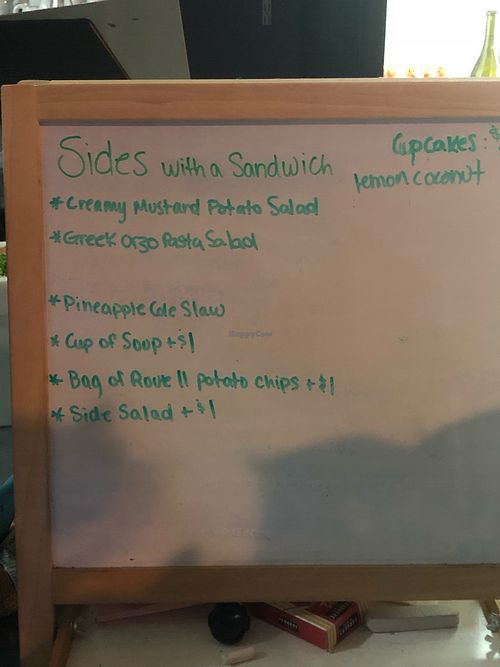 Cupcakes: $
Sides with a Sandwich
lemon coconut
*Creamy Mustard Potato Salad
*Greek Orzo Pasta Salad
*Pineapple Cole Slaw
* Cup of Soup +$1
* Bag of Route 11 potato chips +$1
* Side Salad +$1
HappyCow